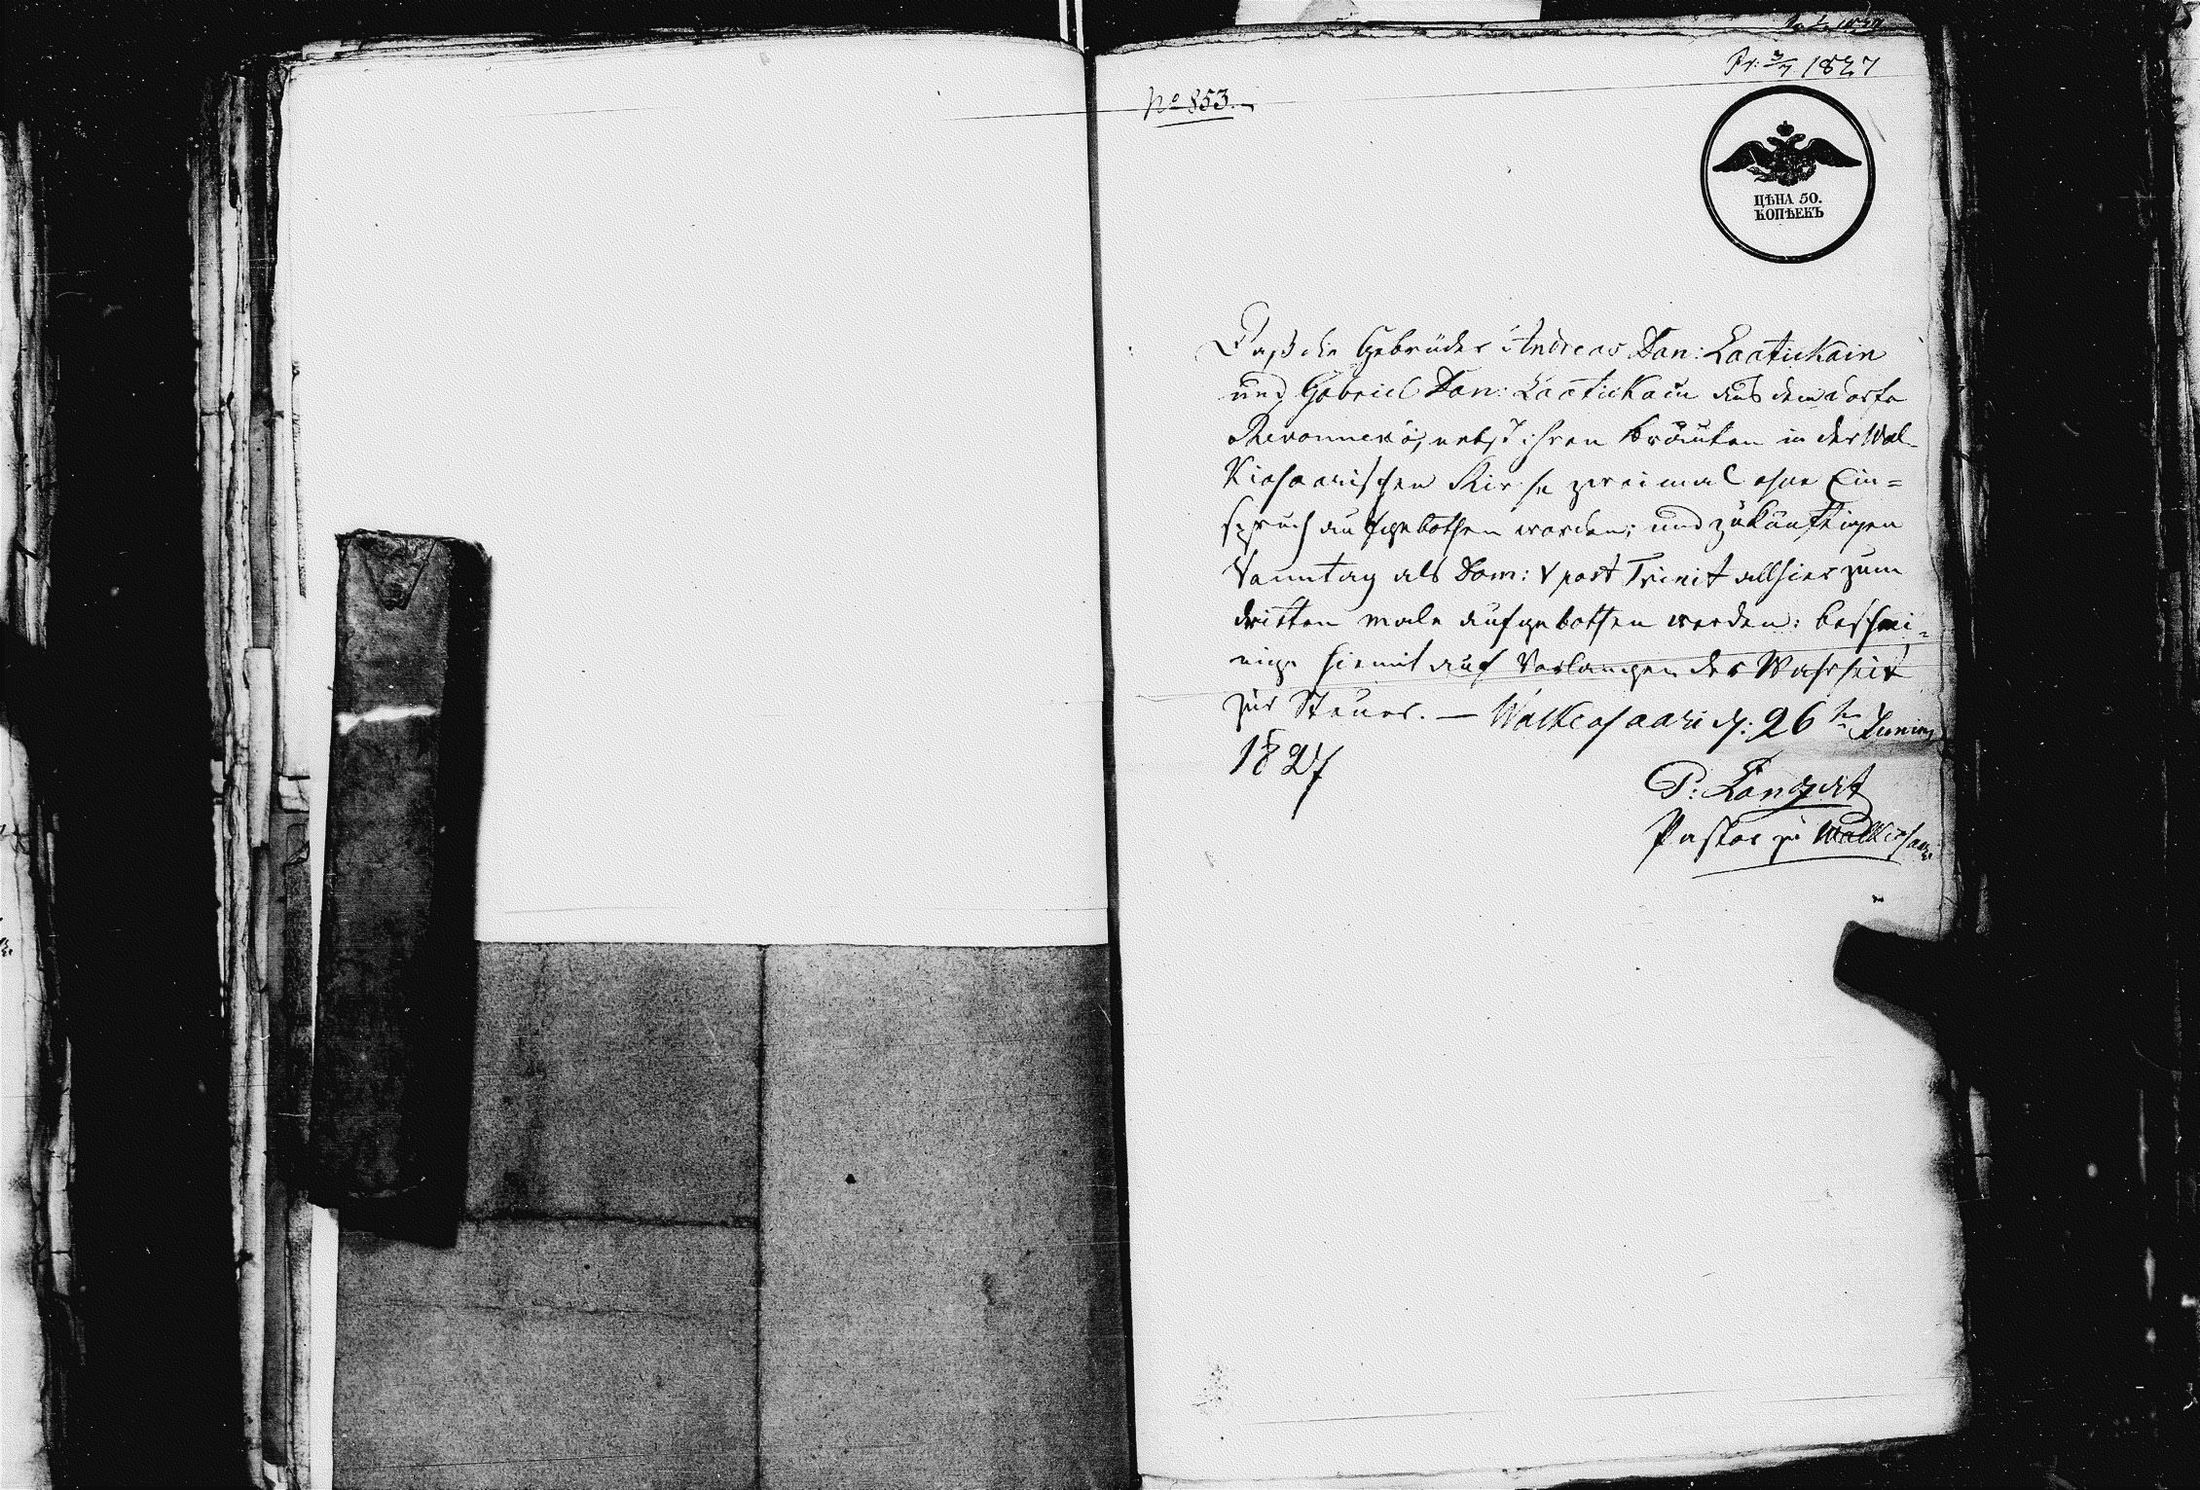 Pr: 3/7 1827
No 853.
ЦѢНА 50.
КОПѢЕКЪ
Daß die Gebrüder Andreas Dan: Laatikain
und Gabriel Dan: Laatikain aus dem Dorfe
nebst ihren Bräuten in der Wal-
kiasaarischen Kirche zweimal ohne Ein=
spruch aufgebothen worden; und zukünftigen
Sonntag als Dom: V post Trinit allhier zum
dritten male aufgebothen werden: beschei-
nige hiemit auf Verlangen der Wahrheit
zur Steuer. — Walkeasaari d: 26ten Junius
1827
Pastor zu Walkeasaari